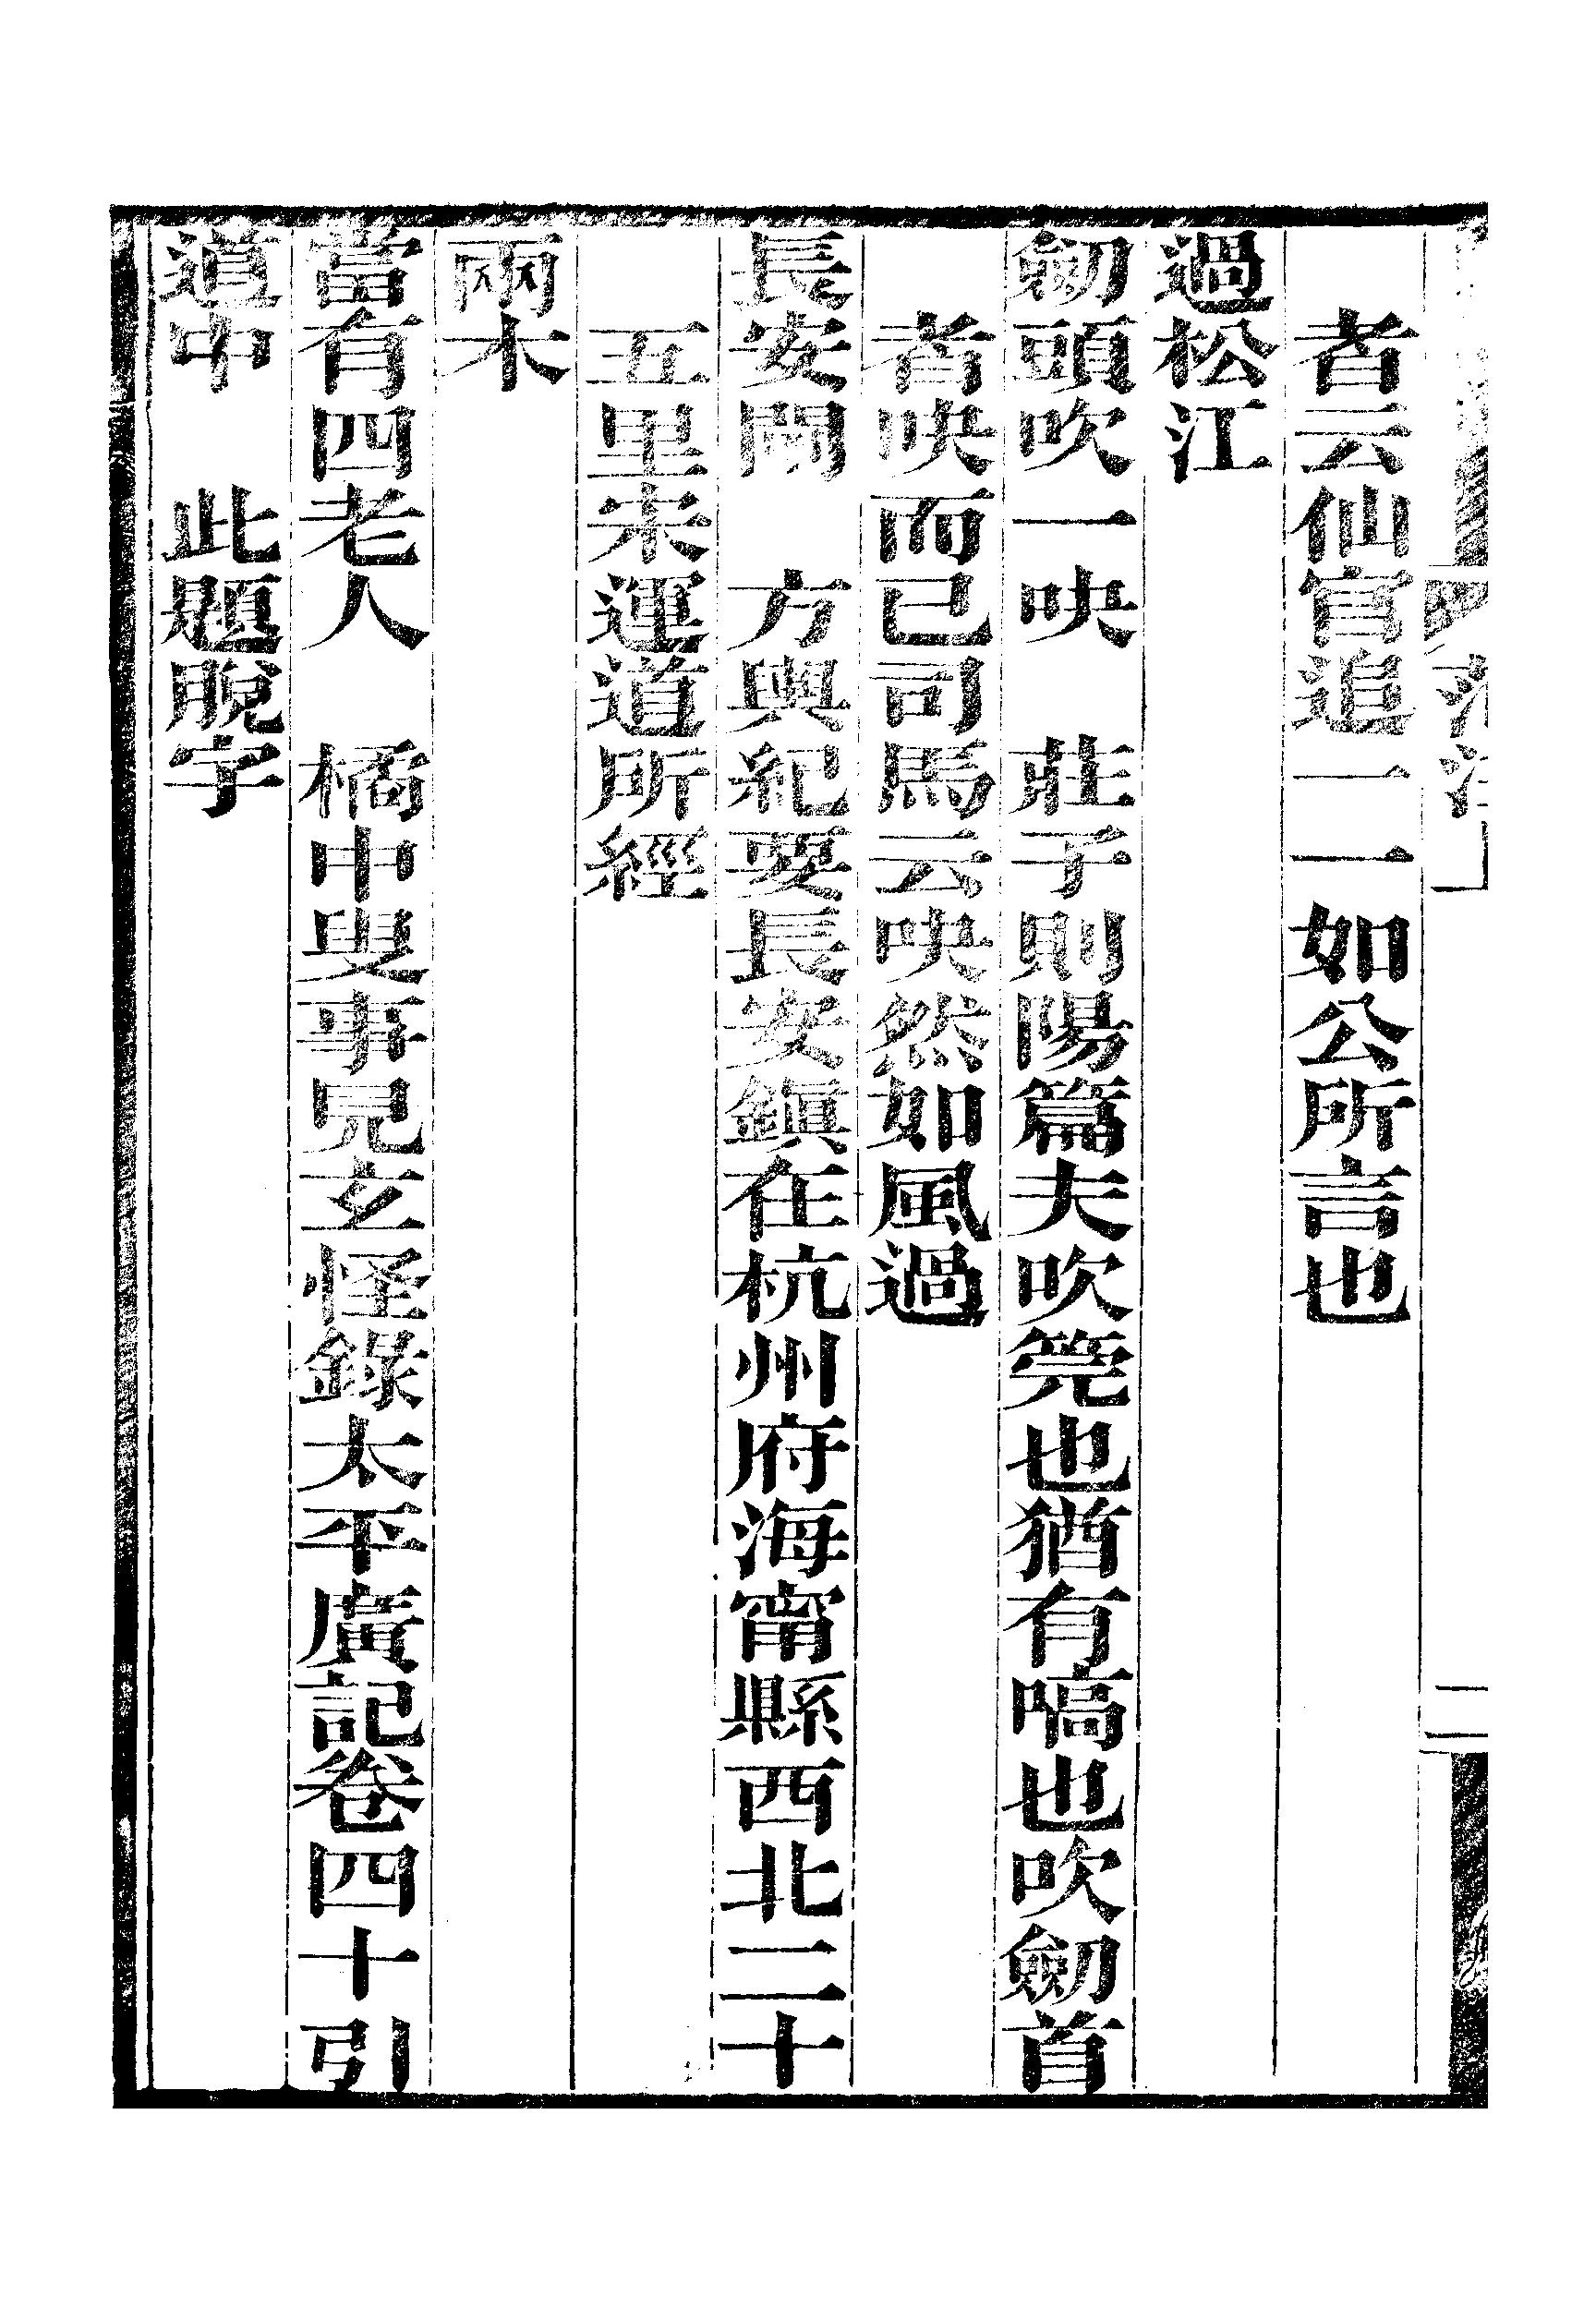 二
者云仙官追一一如公所言也
過松江
劒頭吹一吷　莊子則陽篇夫吹筦也猶有嗃也吹劒首
者吷而已司馬云吷然如風過
長安閘　方輿紀要長安鎭在杭州府海甯縣西北二十
五里宋運道所經
兩木
當有四老人　橘中叟事見玄怪錄太平廣記卷四十引
道中　此題脫字